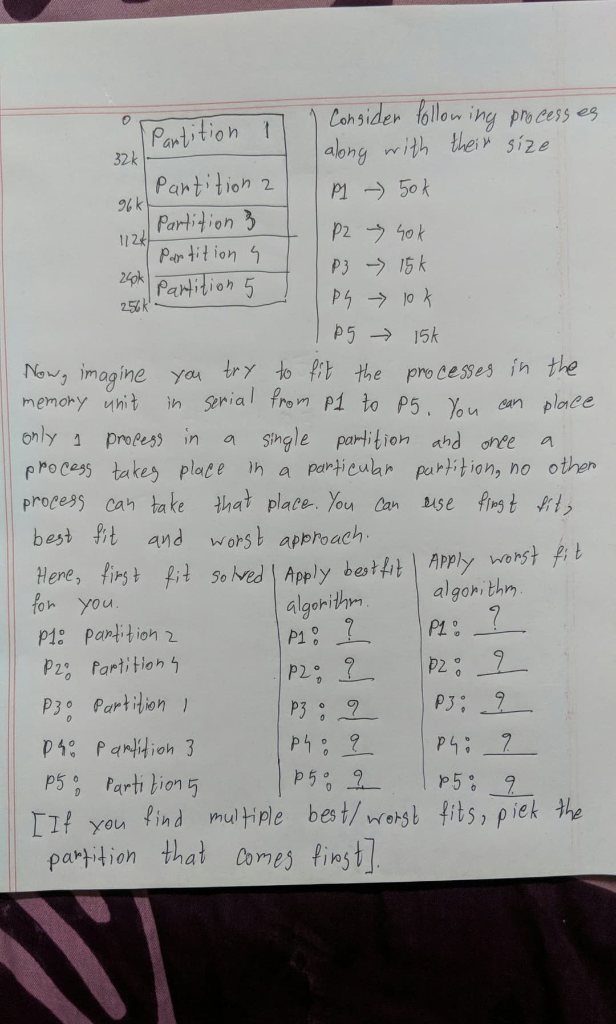 0
Partition 1
32k
Partition 2
96k
Partition 3
112k
Partition 4
240k
Partition 5
256k
Consider following processes
along with their size
P1 → 50k
P2 → 40k
P3 → 15k
P4 → 10k
P5 → 15k
Now, imagine you try to fit the processes in the
memory unit in serial from P1 to P5. You can place
only 1 process in a single partition and once a
process takes place in a particular partition, no other
process can take that place. You can use first fit,
best fit and worst approach.
Here, first fit solved
for you.
P1: Partition 2
P2: Partition 4
P3: Partition 1
P4: Partition 3
P5: Partition 5
Apply best fit
algorithm.
P1: ?
P2: ?
P3: ?
P4: ?
P5: ?
Apply worst fit
algorithm.
P1: ?
P2: ?
P3: ?
P4: ?
P5: ?
[If you find multiple best/worst fits, pick the
partition that comes first].